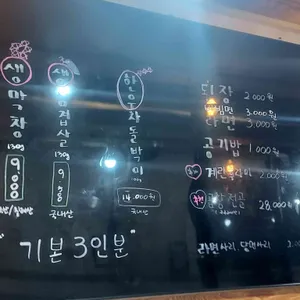 생막창
130g
9.8
생삼겹살
130g
9.8
국내산
한우차돌박이
14.000원
국내산
된장 2.000원
비빔면 3.000원
라면 3.000원
공기밥 1.000원
계란후라이 2.000원
전골 28,000원
라면사리 당면사리
"기본 3인분"